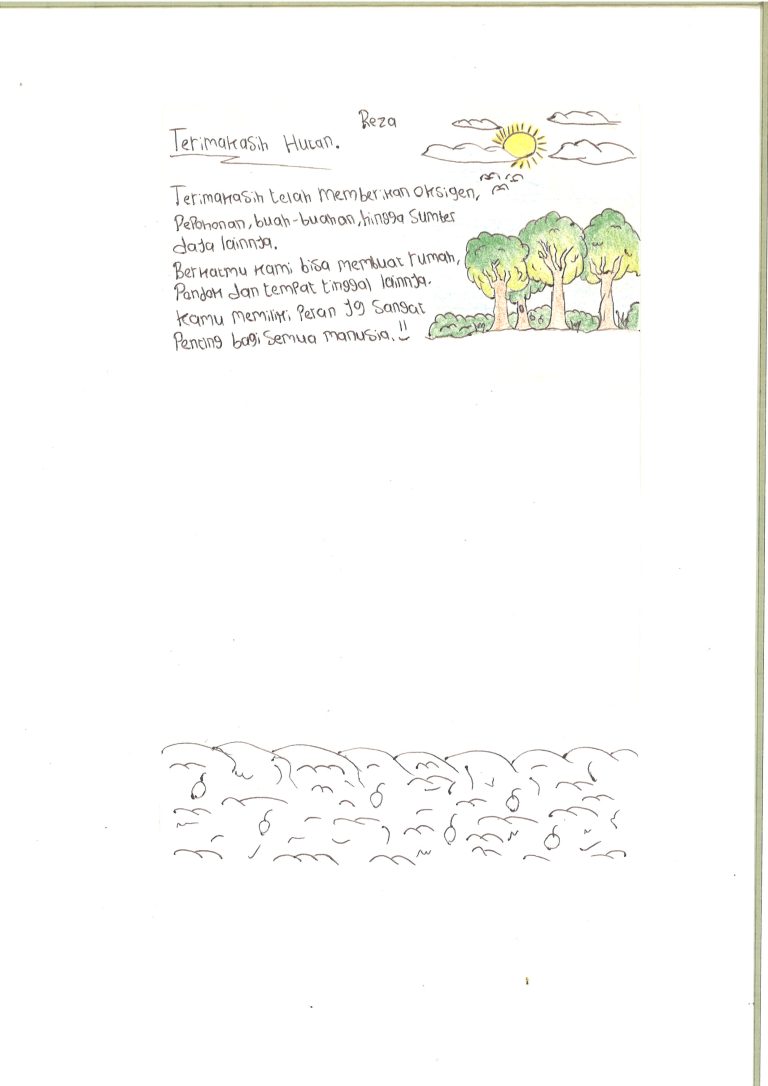 Reza
Terimakasih Hutan.
Terimakasih telah memberikan oksigen,
Pepohonan, buah-buahan, hingga sumber
daya lainnya.
Berkatmu kami bisa membuat rumah,
Pondok dan tempat tinggal lainnya.
Kamu memiliki Peran yg Sangat
Penting bagi Semua manusia.!!